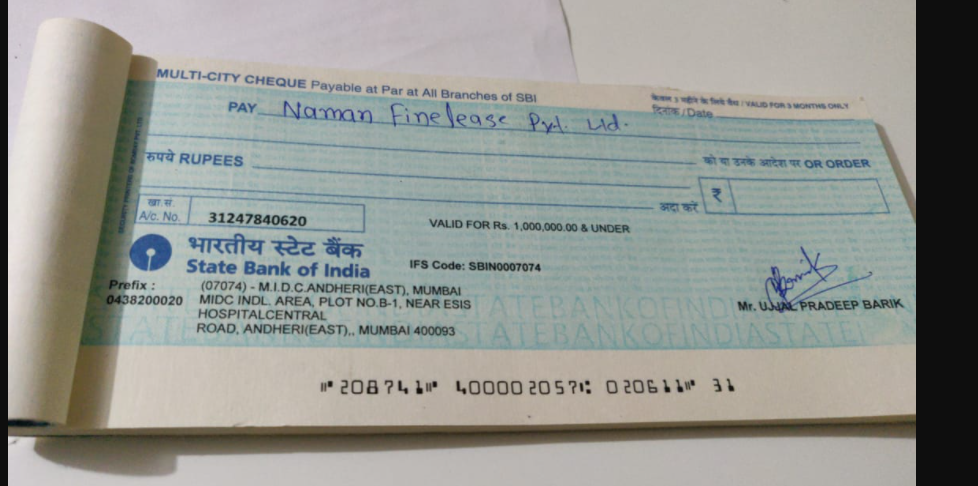 MULTI-CITY CHEQUE Payable at Par at All Branches of SBI
केवल 3 महीने के लिये वैध / VALID FOR 3 MONTHS ONLY
दिनांक / Date
PAY Naman Finelease Pvt. Ltd.
रुपये RUPEES
को या उनके आदेश पर OR ORDER
अदा करें ₹
खा.सं.
A/c. No. 31247840620
VALID FOR Rs. 1,000,000.00 & UNDER
भारतीय स्टेट बैंक
State Bank of India
IFS Code: SBIN0007074
Prefix :
0438200020
(07074) - M.I.D.C.ANDHERI(EAST), MUMBAI
MIDC INDL. AREA, PLOT NO.B-1, NEAR ESIS
HOSPITALCENTRAL
ROAD, ANDHERI(EAST),, MUMBAI 400093
Mr. UJJAL PRADEEP BARIK
⑈208741⑈ 400002057⑆ 020611⑈ 31